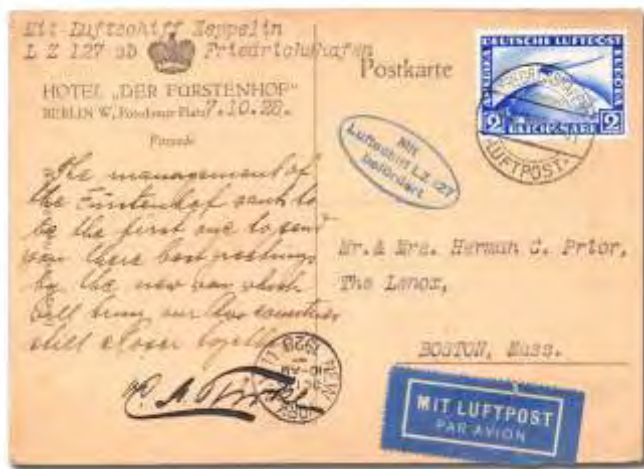 Mit Luftschiff Zeppelin
L Z 127 ab Friedrichshafen
HOTEL „DER FÜRSTENHOF“
BERLIN W, Potsdamer Platz 7.10.28.
Postkarte
DEUTSCHE LUFTPOST
2 REICHSMARK 2
LUFTPOST
Mit
Luftschiff LZ 127
befördert
The management of
the Fürstenhof want to
be the first one to send
you there best greetings
by the new way which
will bring our two countries
still closer together
Mr.& Mrs. Herman C. Prior,
The Lenox,
BOSTON, Mass.
NEW YORK
1928
MIT LUFTPOST
PAR AVION